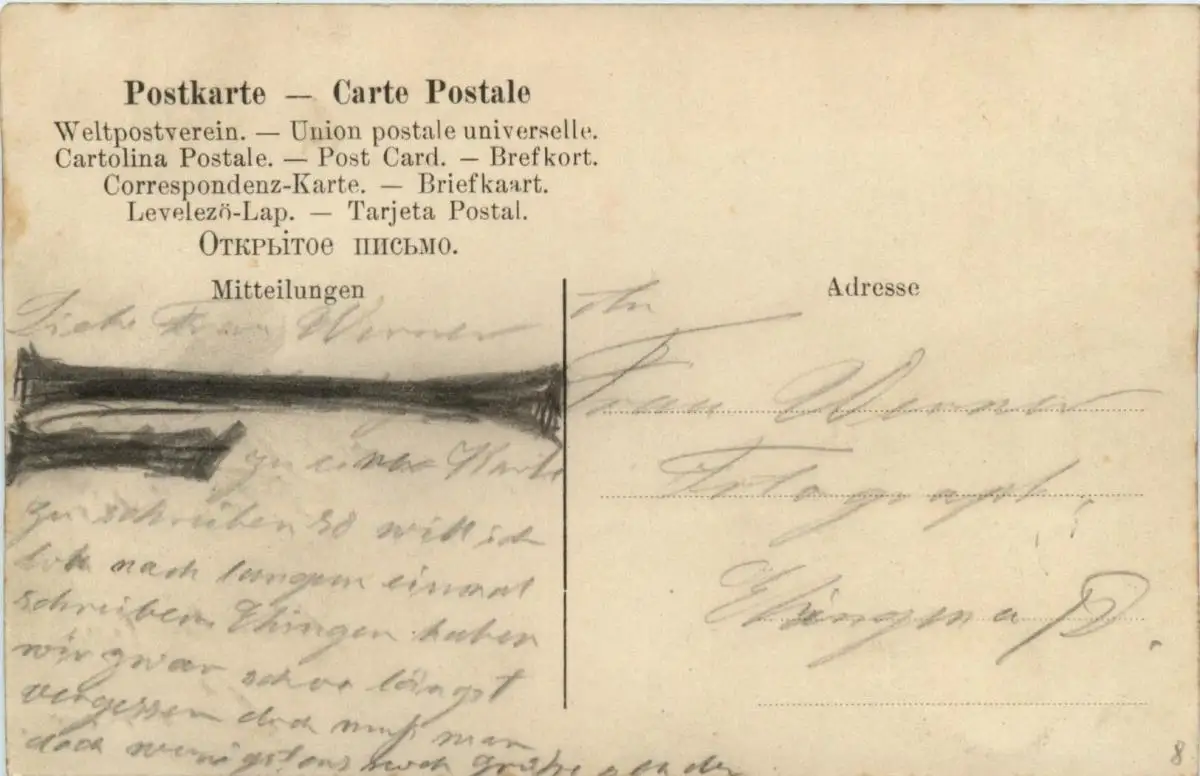 Postkarte — Carte Postale
Weltpostverein. — Union postale universelle.
Cartolina Postale. — Post Card. — Brefkort.
Correspondenz-Karte. — Briefkaart.
Levelező-Lap. — Tarjeta Postal.
Открытое письмо.
Mitteilungen
Liebe Frau Werner
zu einer Karte
zu schreiben so will ich
nach langem einmal
schreiben Ehingen haben
wir zwar schon längst
vergessen doch muß man
doch wenigstens noch Grüße
Adresse
An
Frau Werner
Fotograph.
Ehingen a/D.
8